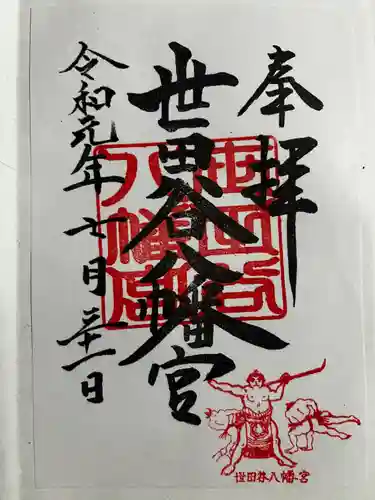 奉拝
世田谷八幡宮
令和元年七月三十一日
世田谷八幡宮
世田谷八幡宮